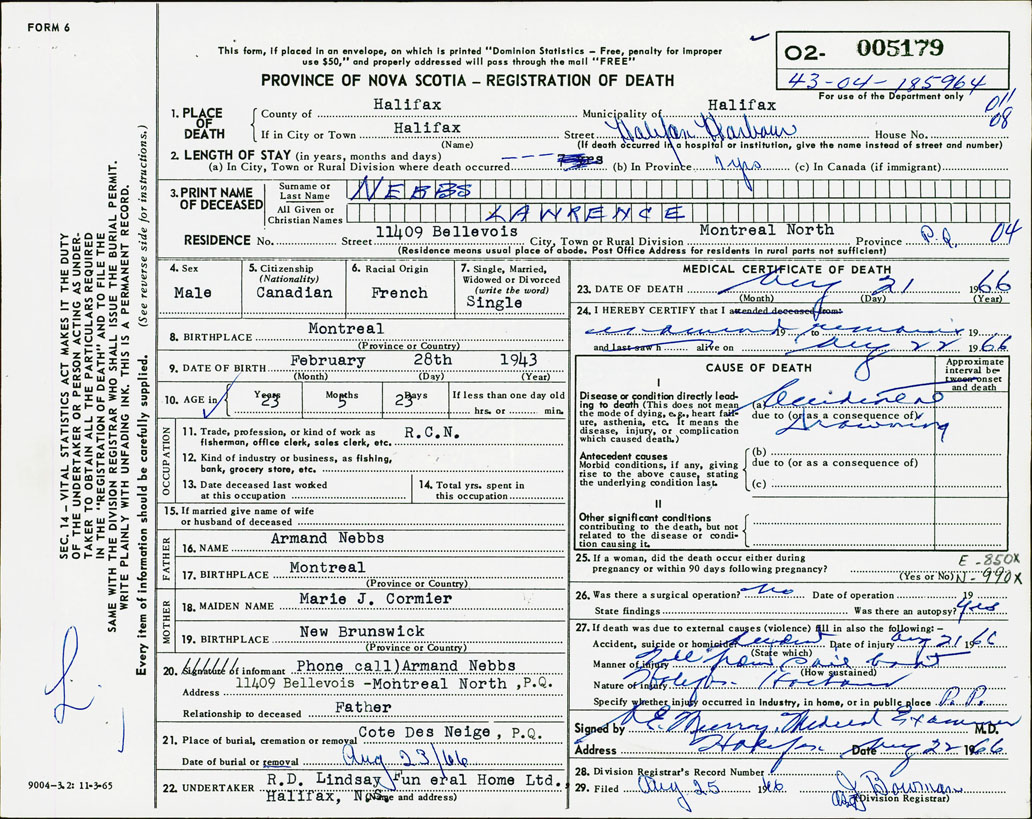 FORM 6
This form, if placed in an envelope, on which is printed "Dominion Statistics – Free, penalty for improper
use $50," and properly addressed will pass through the mail "FREE"
PROVINCE OF NOVA SCOTIA – REGISTRATION OF DEATH
O2- 005179
43-04-185964
For use of the Department only
011
08
1. PLACE OF DEATH
County of Halifax Municipality of Halifax
If in City or Town Halifax Street Halifax Harbour House No.
(Name) (If death occurred in a hospital or institution, give the name instead of street and number)
2. LENGTH OF STAY (in years, months and days)
(a) In City, Town or Rural Division where death occurred (b) In Province 7 yrs (c) In Canada (if immigrant)
3. PRINT NAME OF DECEASED
Surname or Last Name NEBBS
All Given or Christian Names LAWRENCE
RESIDENCE No. Street 11409 Bellevois City, Town or Rural Division Montreal North Province P.Q. 04
(Residence means usual place of abode. Post Office Address for residents in rural parts not sufficient)
4. Sex Male
5. Citizenship (Nationality) Canadian
6. Racial Origin French
7. Single, Married, Widowed or Divorced (write the word) Single
8. BIRTHPLACE Montreal
(Province or Country)
9. DATE OF BIRTH February 28th 1943
(Month) (Day) (Year)
10. AGE in Years 23 Months 5 Days 23 If less than one day old hrs. or min.
OCCUPATION
11. Trade, profession, or kind of work as R.C.N.
fisherman, office clerk, sales clerk, etc.
12. Kind of industry or business, as fishing,
bank, grocery store, etc.
13. Date deceased last worked at this occupation
14. Total yrs. spent in this occupation
15. If married give name of wife
or husband of deceased
FATHER
16. NAME Armand Nebbs
17. BIRTHPLACE Montreal
(Province or Country)
MOTHER
18. MAIDEN NAME Marie J. Cormier
19. BIRTHPLACE New Brunswick
(Province or Country)
20. Signature of informant Phone call)Armand Nebbs
Address 11409 Bellevois -Mohtreal North ,P.Q.
Relationship to deceased Father
21. Place of burial, cremation or removal Cote Des Neige, P.Q.
Date of burial or removal Aug 23/66
22. UNDERTAKER R.D. Lindsay Fun eral Home Ltd.,
Halifax, N.S.
(Name and address)
MEDICAL CERTIFICATE OF DEATH
23. DATE OF DEATH Aug 21 1966
(Month) (Day) (Year)
24. I HEREBY CERTIFY that I attended deceased from:
examined 19 to remains 19
and last saw h alive on Aug 22 1966
CAUSE OF DEATH
Approximate interval between onset and death
I
Disease or condition directly leading to death (This does not mean the mode of dying, e.g., heart failure, asthenia, etc. It means the disease, injury, or complication which caused death.)
(a) Accidental
due to (or as a consequence of)
Drowning
Antecedent causes
Morbid conditions, if any, giving rise to the above cause, stating the underlying condition last.
(b)
due to (or as a consequence of)
(c)
II
Other significant conditions
contributing to the death, but not related to the disease or condition causing it.
25. If a woman, did the death occur either during
pregnancy or within 90 days following pregnancy?
(Yes or No)
E-850X
N-990X
26. Was there a surgical operation? No Date of operation 19
State findings Was there an autopsy? Yes
27. If death was due to external causes (violence) fill in also the following:–
Accident, suicide or homicide Accident Date of injury Aug 21 1966
(State which)
Manner of injury Fell from sail boat
(How sustained)
Nature of injury
Specify whether injury occurred in industry, in home, or in public place P.P.
Signed by E. Murray, Medical Examiner M.D.
Address Halifax Date Aug 22 1966
28. Division Registrar's Record Number
29. Filed Aug 25 1966 J Bowman
(Division Registrar)
SEC. 14 – VITAL STATISTICS ACT MAKES IT THE DUTY
OF THE UNDERTAKER OR PERSON ACTING AS UNDER-
TAKER TO OBTAIN ALL THE PARTICULARS REQUIRED
IN THE "REGISTRATION OF DEATH" AND TO FILE THE
SAME WITH THE DIVISION REGISTRAR WHO SHALL ISSUE THE BURIAL PERMIT.
WRITE PLAINLY WITH UNFADING INK. THIS IS A PERMANENT RECORD.
Every item of information should be carefully supplied. (See reverse side for instructions.)
9004-3.2: 11-3-65